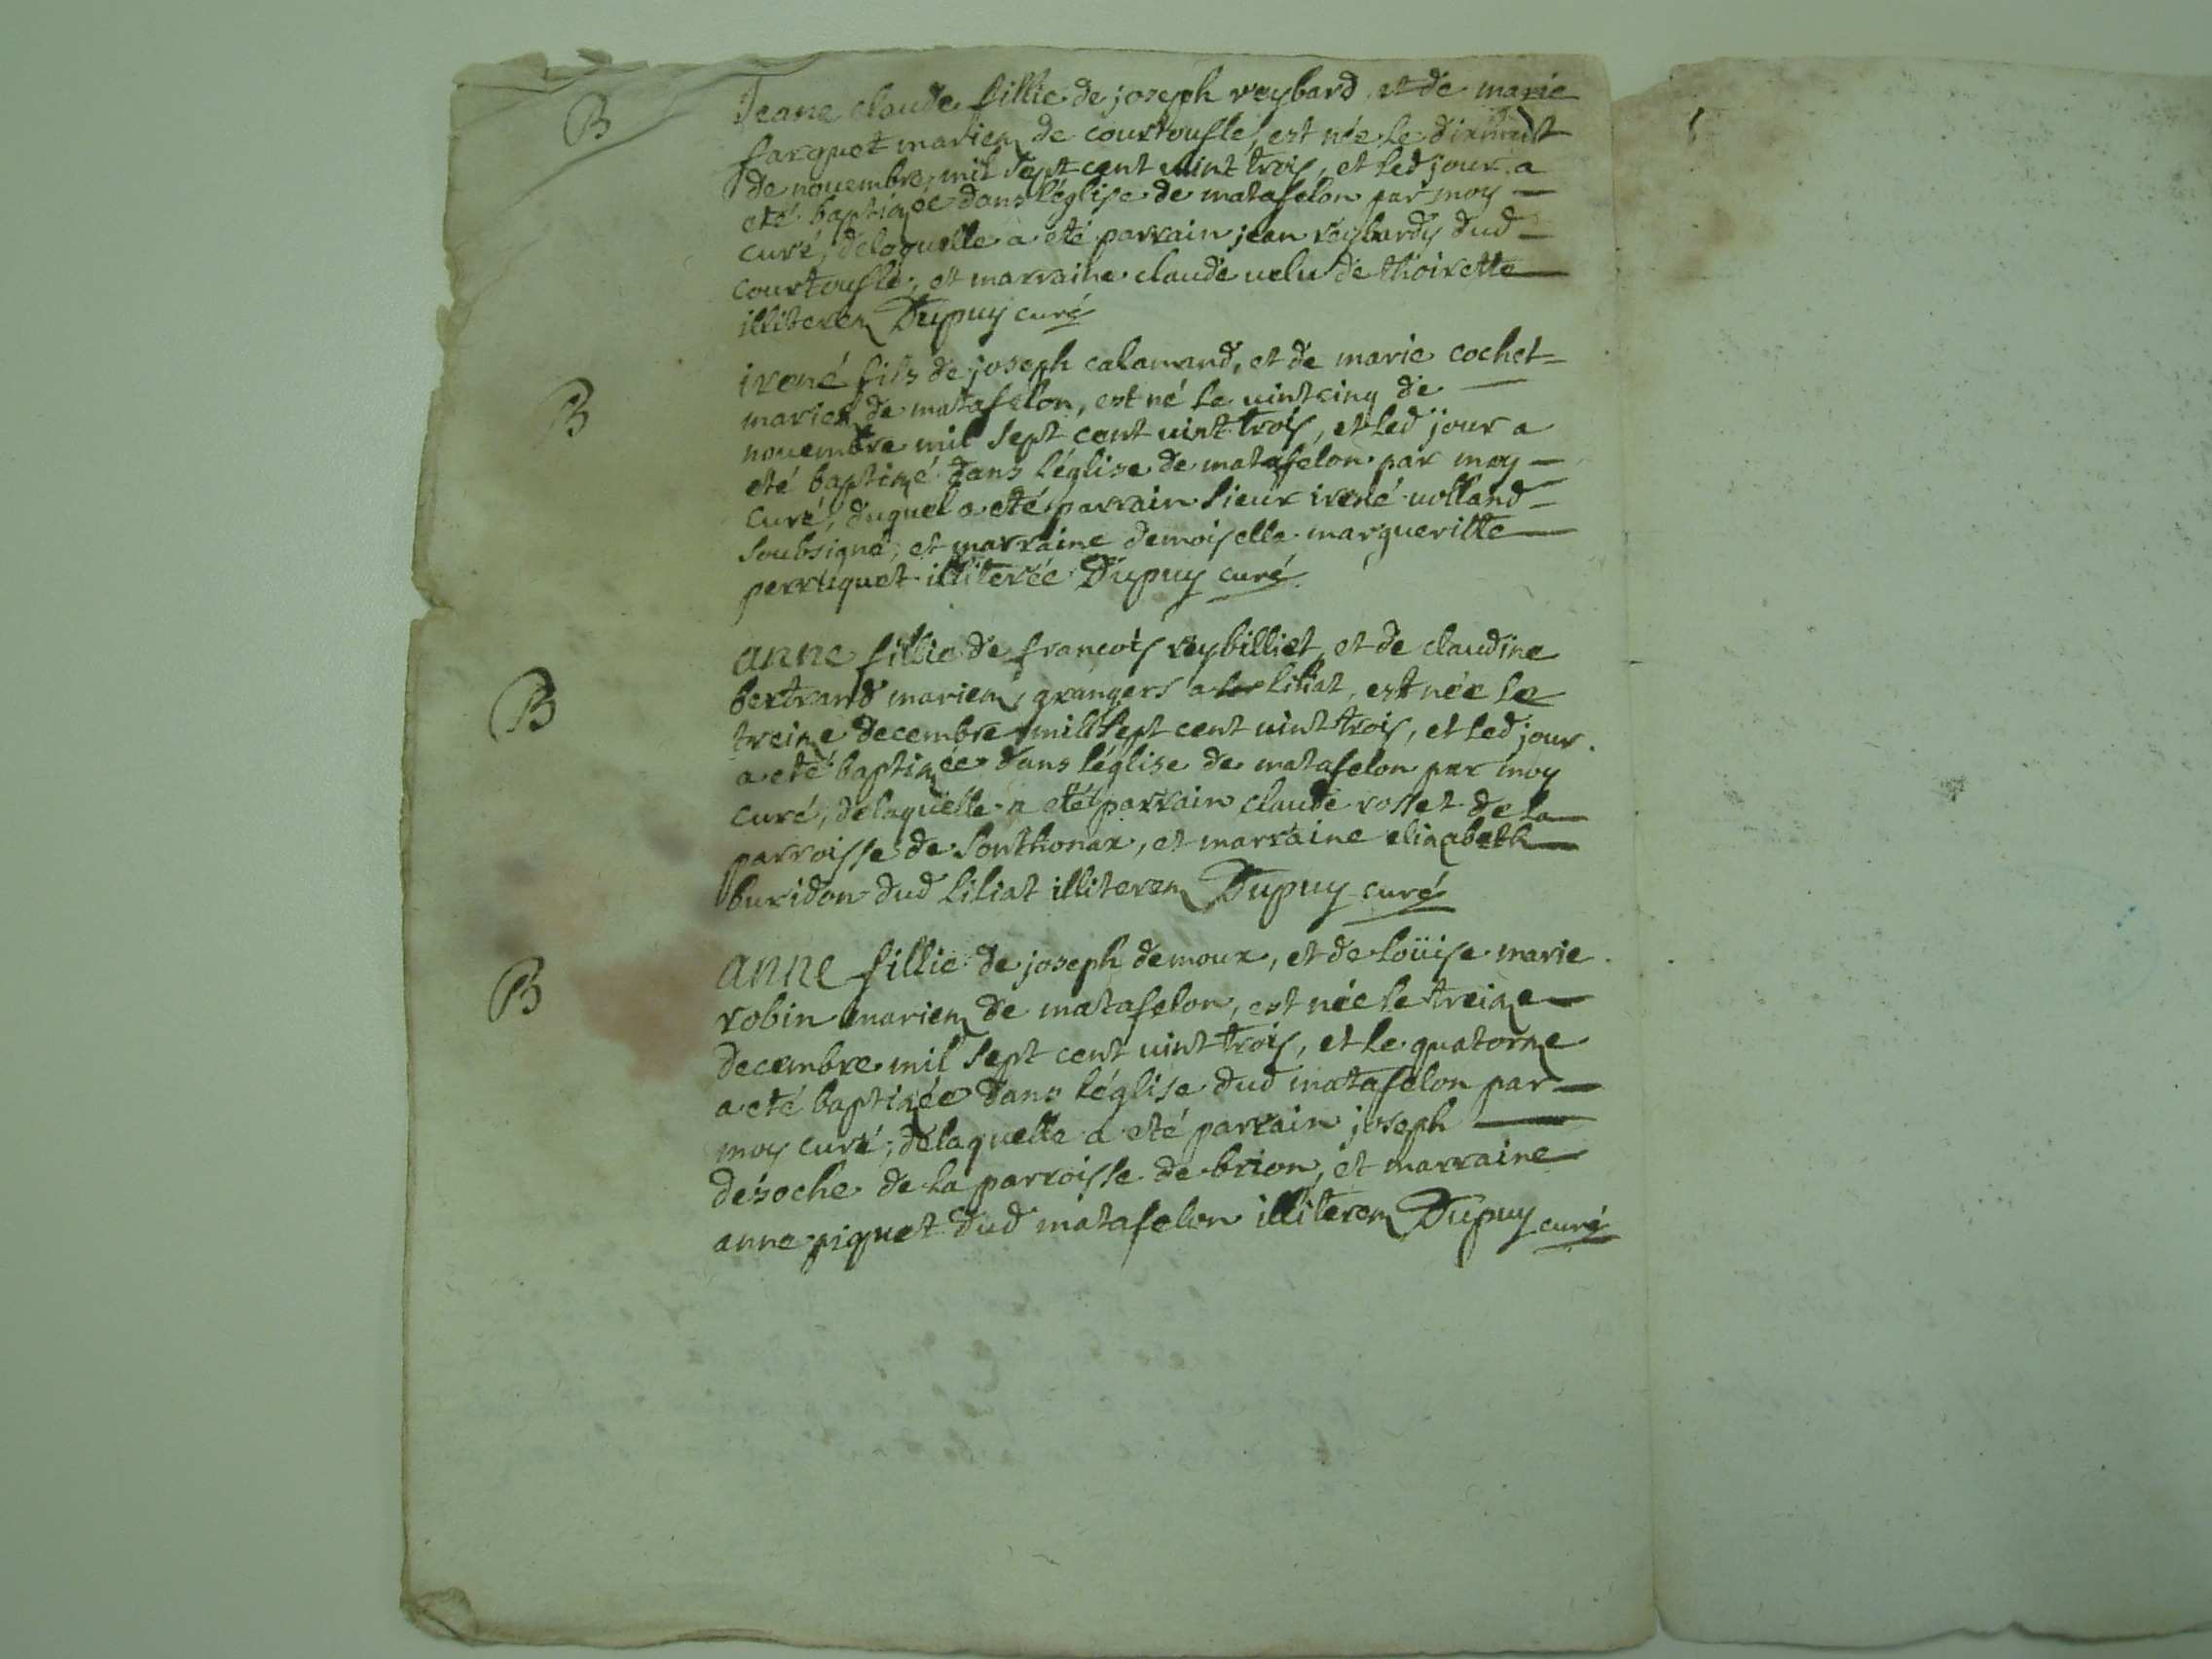 B
Jeane claude fillie de joseph reybard et de marie
farquet mariez de courtoufle, est née le dixhuit
de nouembre, mil sept cent uint trois, et led jour a
eté baptizée dans léglise de matafelon par moy
curé, delaquelle a eté parrain jean reybardy dud
courtoufle, et marraine claude uelu de thoirette
illiterez Dupuy curé
B
irené fils de joseph calamand, et de marie cochet
mariez de matafelon, est né le uintcinq de
nouembre mil sept cent uint trois, et led jour a
eté baptizé dans léglise de matafelon par moy
curé, duquel a eté parrain sieur irené uolland
soubsigné, et marraine demoiselle margueritte
perruquet illiterée Dupuy curé
B
anne fillie de francois reybilliet, et de claudine
bertrand mariez, grangers a liliat, est née le
treize decembre mil sept cent uint trois, et led jour
a eté baptizée dans léglise de matafelon par moy
curé, delaquelle a eté parrain claude rosset de la
parroisse de sonthonax, et marraine elizabeth
buridon dud liliat illiterez Dupuy curé
B
anne fillie de joseph demoux, et de loüise marie
robin mariez de matafelon, est née le treize
decembre mil sept cent uint trois, et le quatorze
a eté baptizée dans léglise dud matafelon par
moy curé, delaquelle a eté parrain joseph
desoche de la parroisse de brion, et marraine
anne piquet dud matafelon illiterez Dupuy curé